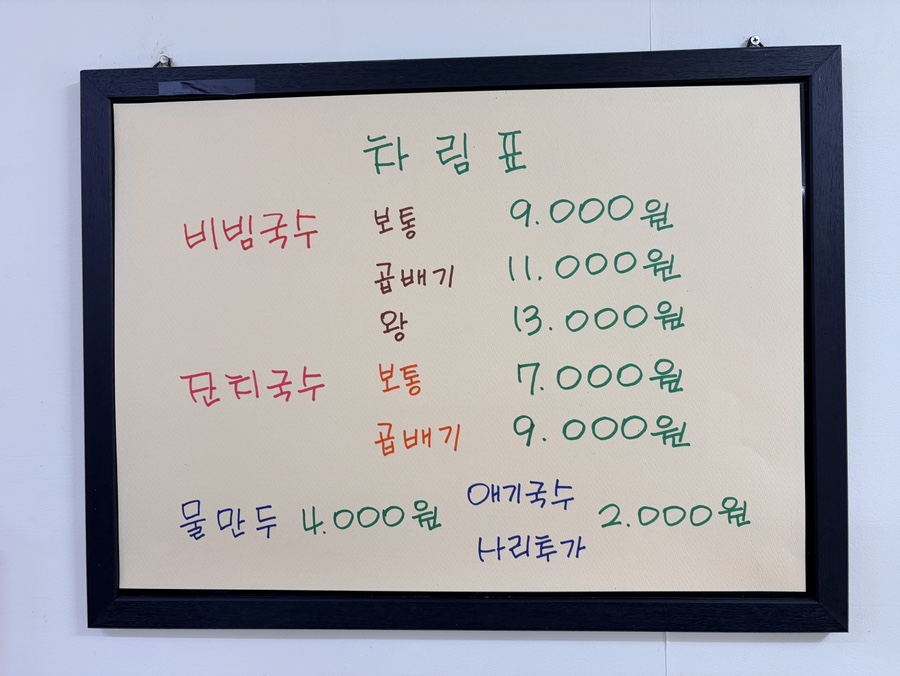 차림표
비빔국수 보통 9.000원
곱배기 11.000원
왕 13.000원
잔치국수 보통 7.000원
곱배기 9.000원
물만두 4.000원 애기국수 2.000원
사리추가